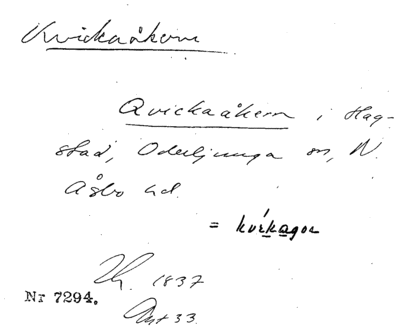 Kvickaåkern
Qvickaåkern i Hag-
stad, Oderljunga sn, N.
Åsbo hd.
= kvikagor
1837
Nr 7294.
Akt 33.